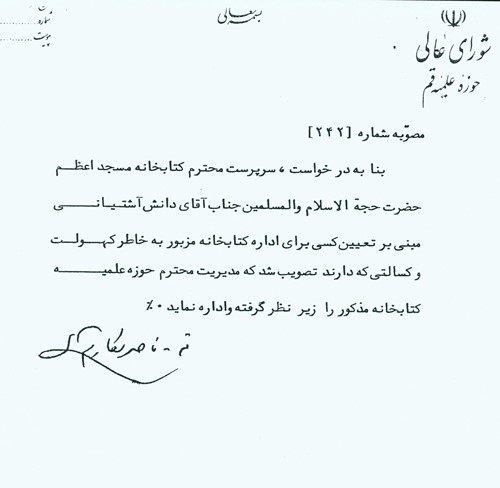 بسمه تعالی
شماره
پیوست
شورای عالی
حوزه علمیه قم
مصوّبه شماره [۲۴۲]
بنا به درخواست ، سرپرست محترم کتابخانه مسجد اعظم
حضرت حجة الاسلام والمسلمین جناب آقای دانش آشتیانی
مبنی بر تعیین کسی برای اداره کتابخانه مزبور به خاطر کهولت
و کسالتی که دارند تصویب شد که مدیریت محترم حوزه علمیه
کتابخانه مذکور را زیر نظر گرفته واداره نماید ٪۰
قم - ناصر مکارم